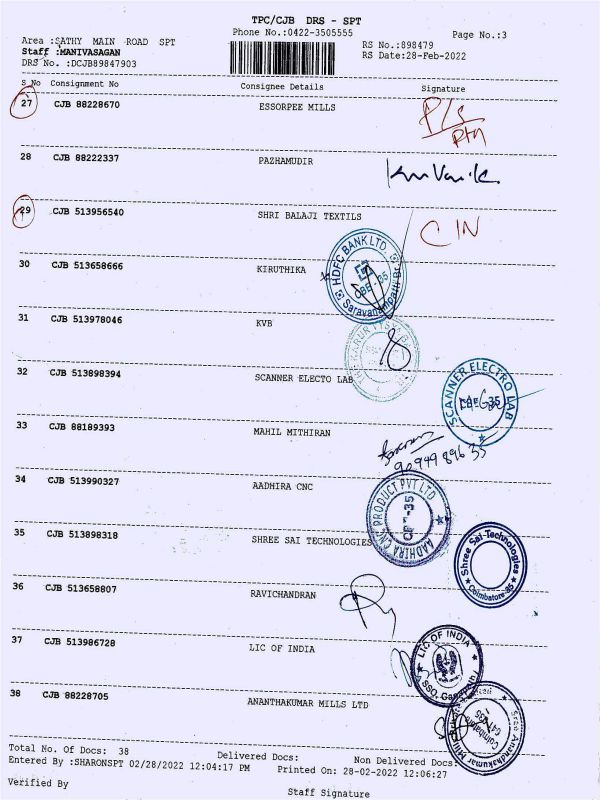 TPC/CJB DRS - SPT
Phone No.:0422-3505555
Page No.:3
Area :SATHY MAIN ROAD SPT
RS No.:898479
Staff :MANIVASAGAN
RS Date:28-Feb-2022
DRS No. :DCJB89847903
S No Consignment No Consignee Details Signature
27 CJB 88228670 ESSORPEE MILLS
28 CJB 88222337 PAZHAMUDIR
29 CJB 513956540 SHRI BALAJI TEXTILS
30 CJB 513658666 KIRUTHIKA
HDFC BANK LTD
31 CJB 513978046 KVB
32 CJB 513898394 SCANNER ELECTO LAB
SCANNER ELECTRO LAB
33 CJB 88189393 MAHIL MITHIRAN
34 CJB 513990327 AADHIRA CNC
AADHIRA CNC PRODUCT PVT LTD
35 CJB 513898318 SHREE SAI TECHNOLOGIES
Shree Sai Technologies
Coimbatore-35
36 CJB 513658807 RAVICHANDRAN
37 CJB 513986728 LIC OF INDIA
LIC OF INDIA
38 CJB 88228705 ANANTHAKUMAR MILLS LTD
Total No. Of Docs: 38 Delivered Docs: Non Delivered Docs:
Entered By :SHARONSPT 02/28/2022 12:04:17 PM Printed On: 28-02-2022 12:06:27
Verified By
Staff Signature